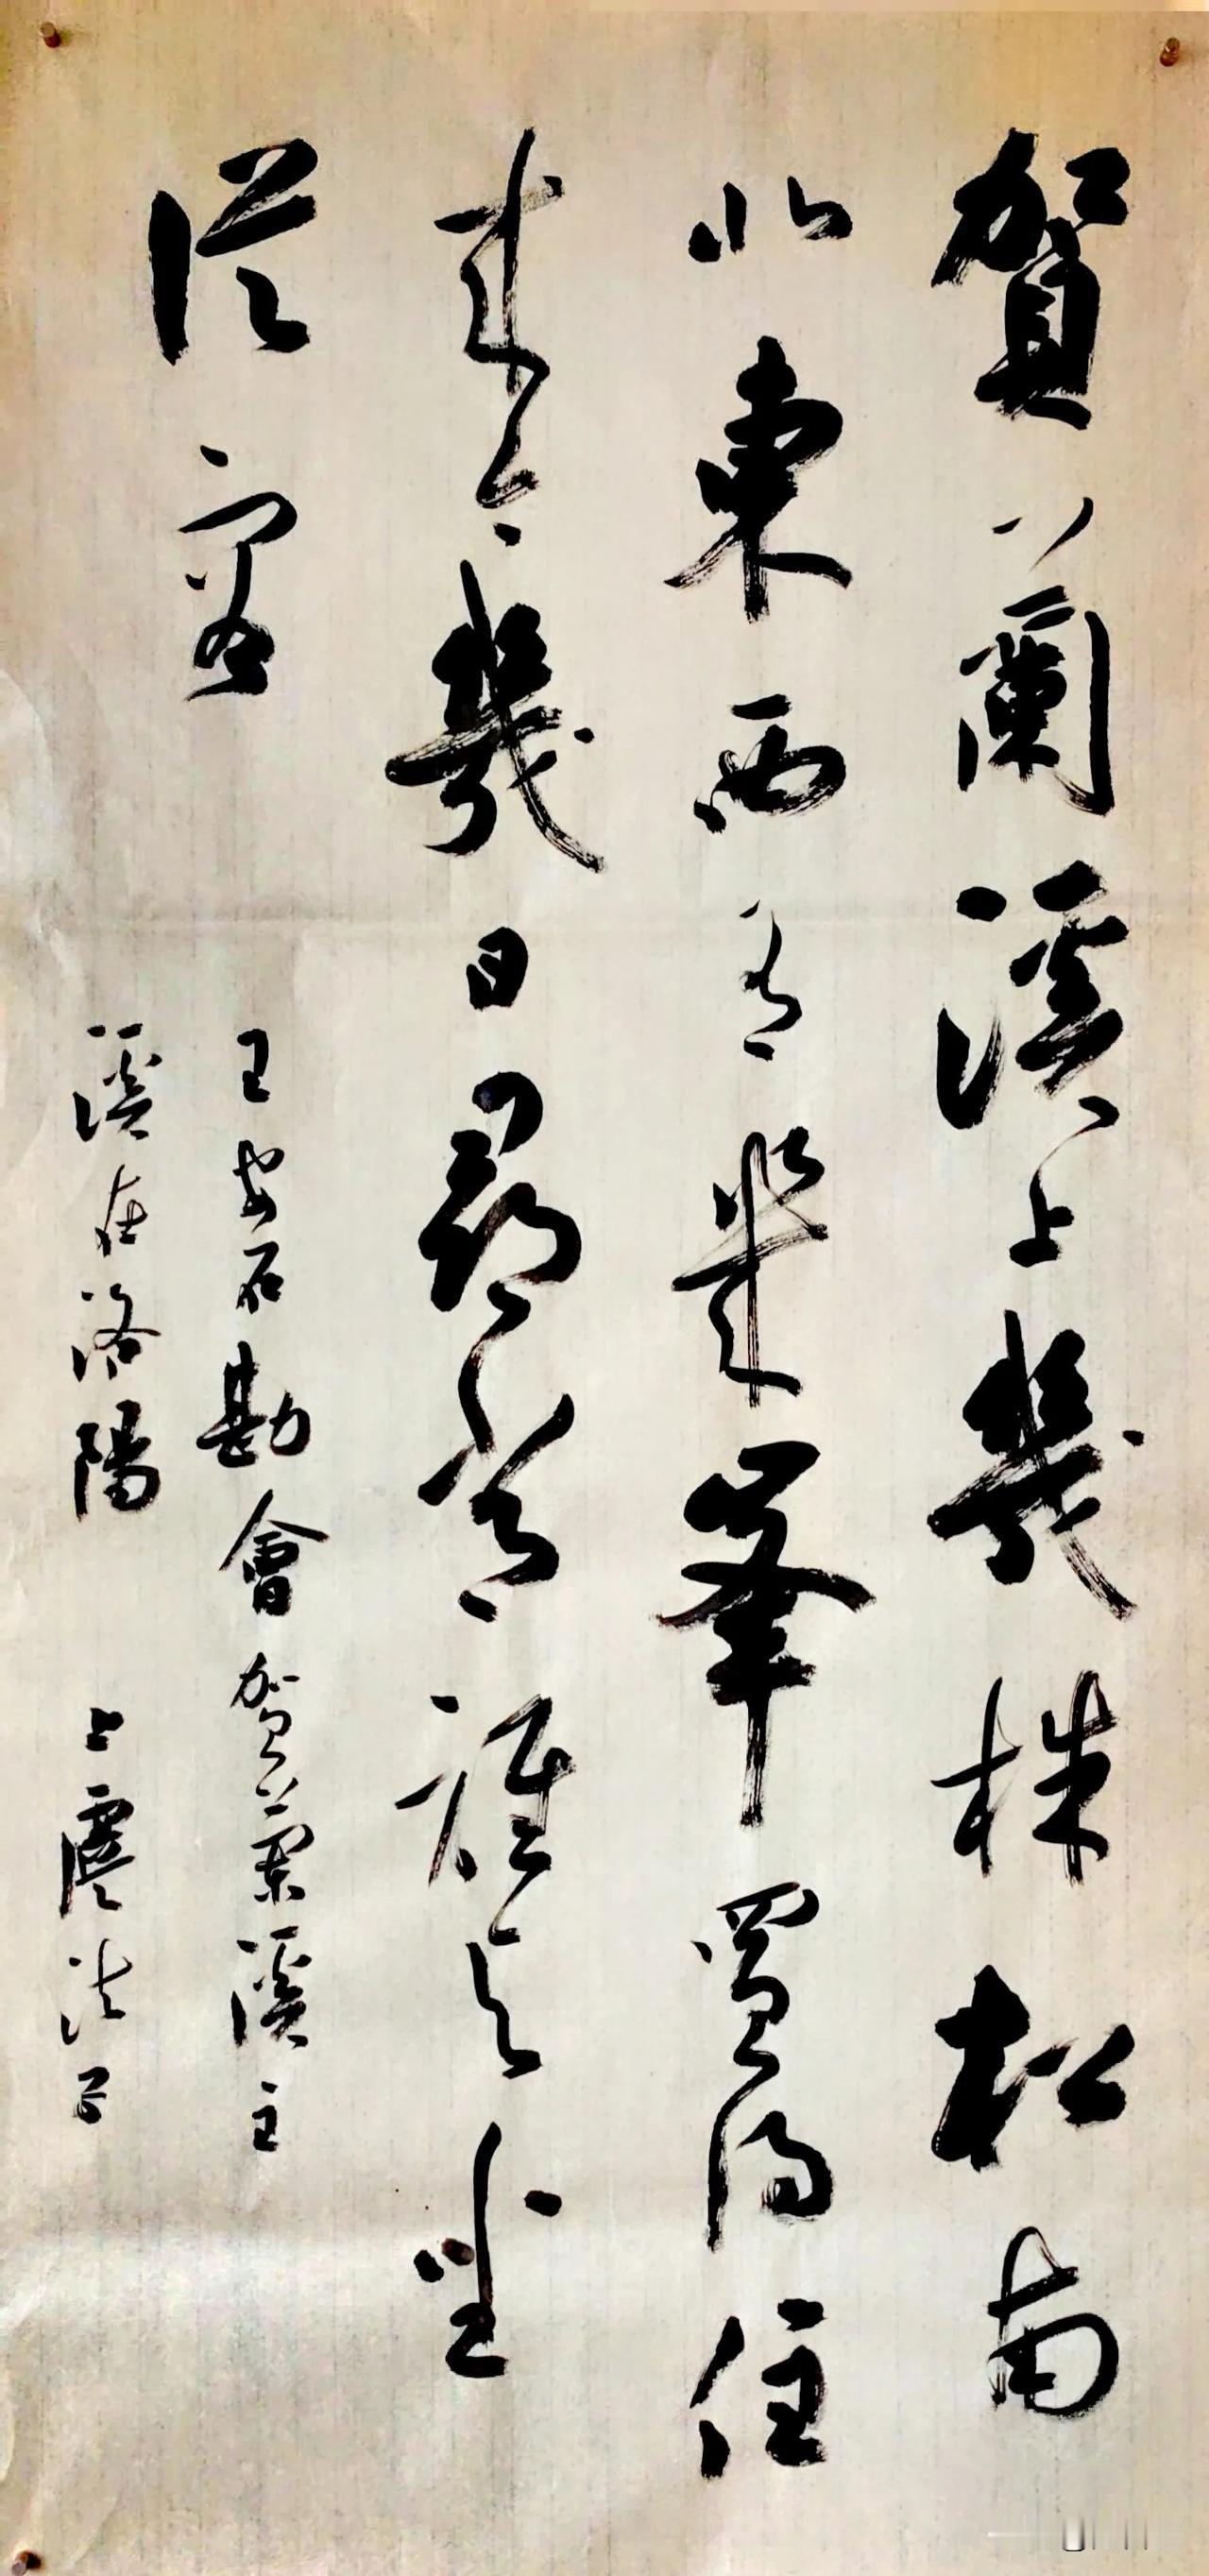 賀蘭溪上幾株松南
北東西有幾峯買得住
來今幾日尋常誰與坐
從容
王安石勘會賀蘭溪主
溪在洛陽 上虞法